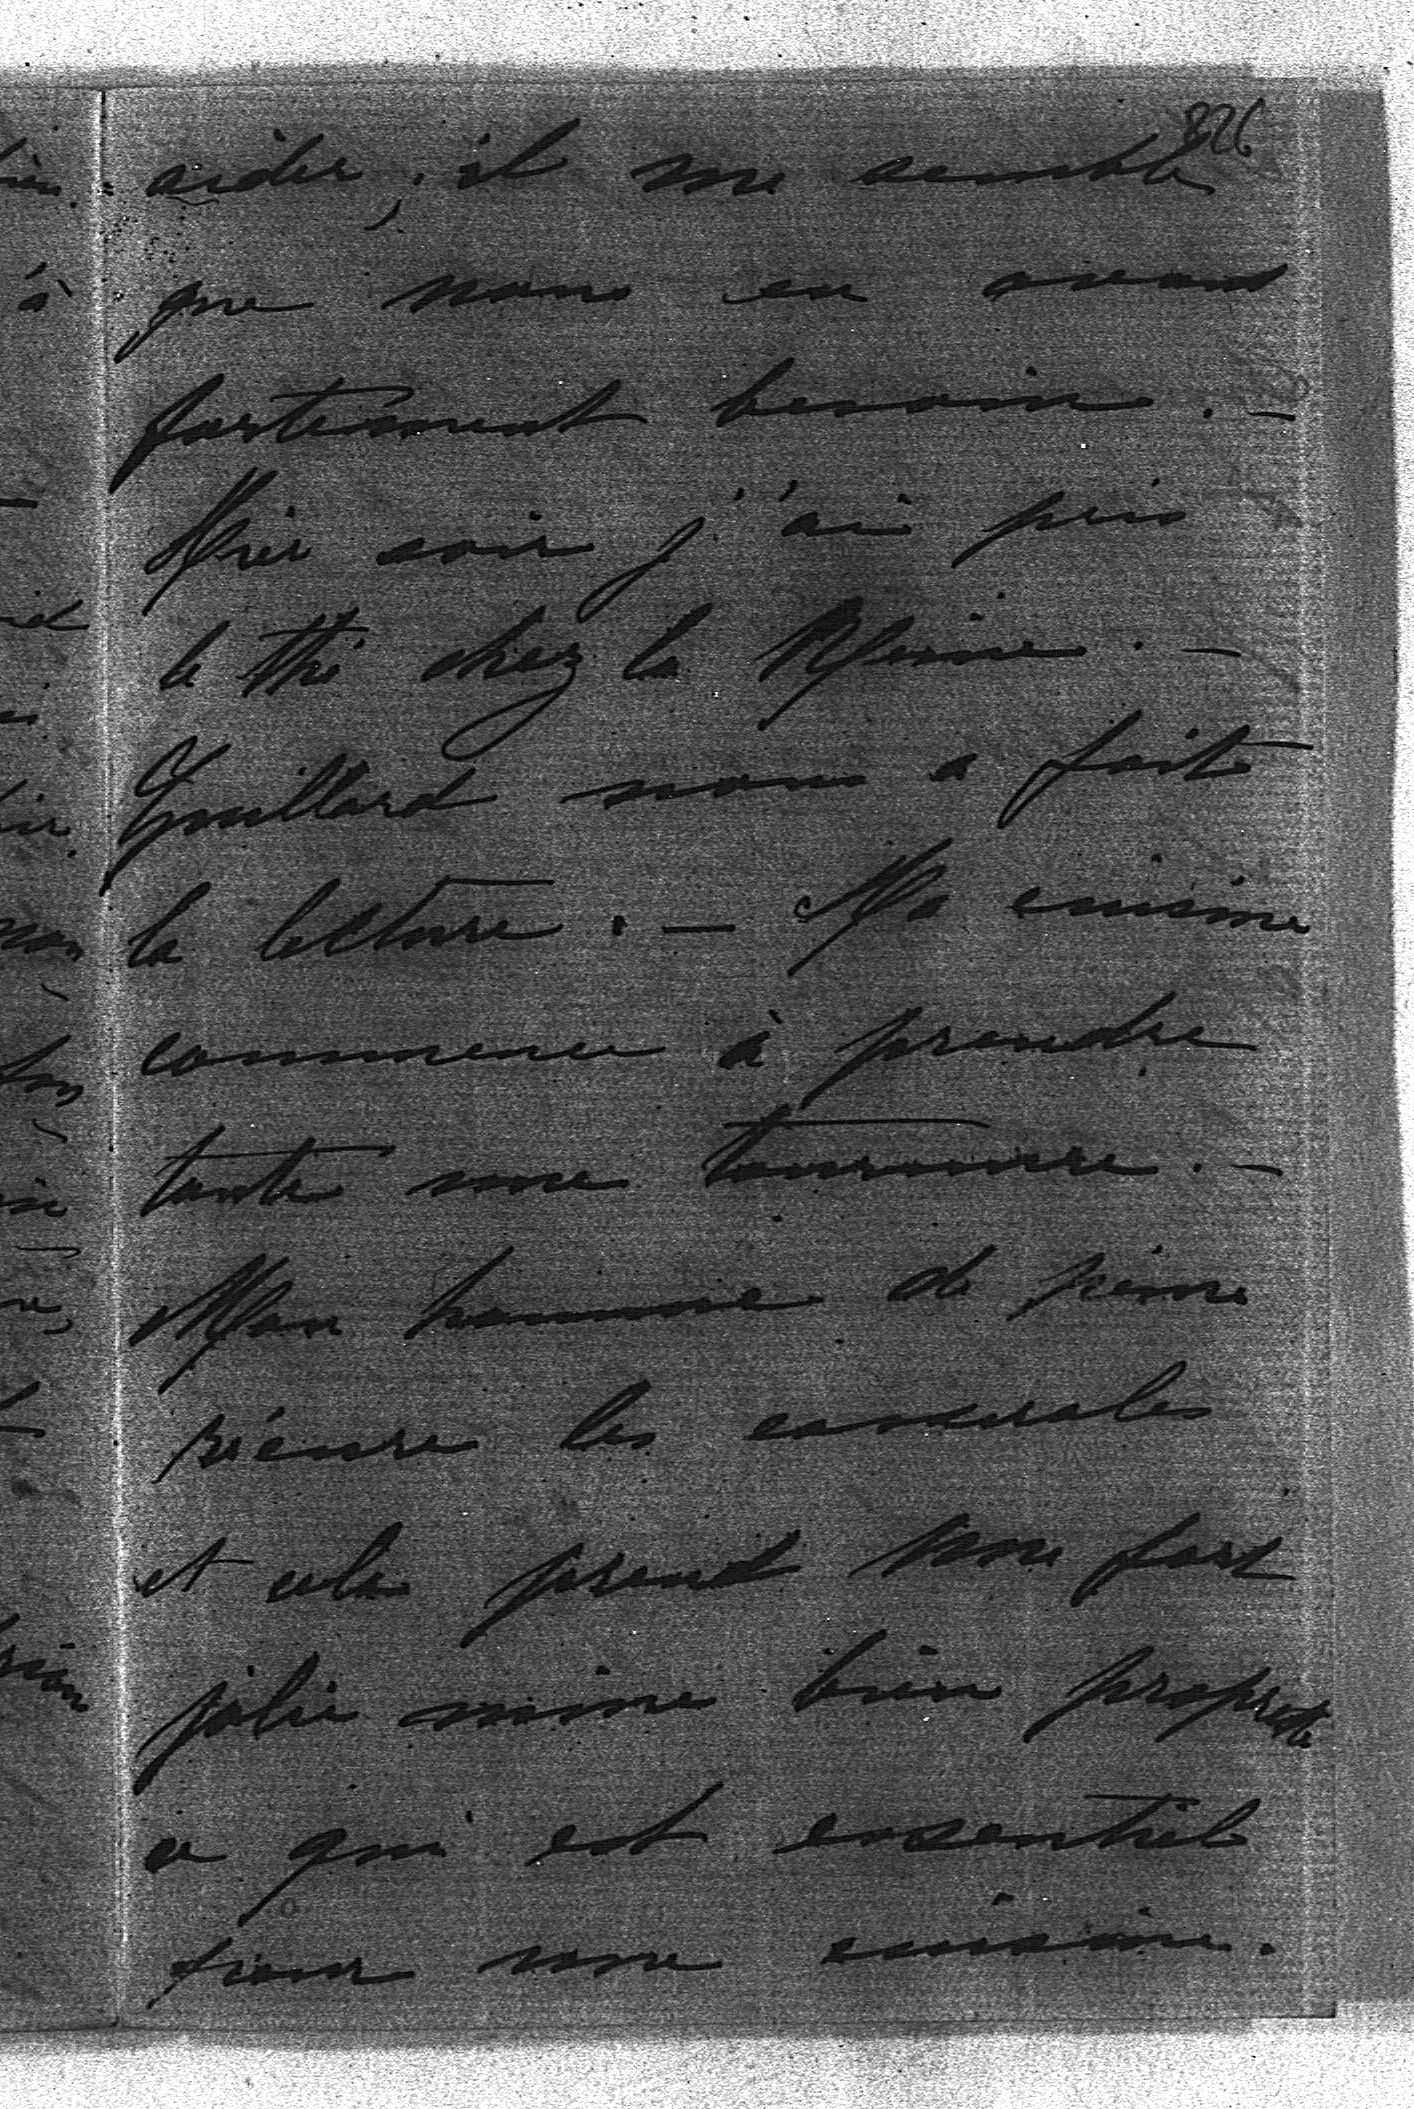 826
aider, il me semble
que nous en avons
fortement besoin. —
Hier soir j'ai pris
le thé chez la Reine. —
Gouillard nous a fait
la lecture. — Ma cuisine
commence à prendre
toute une tournure. —
Mon homme de peine
récure les casseroles
et cela prend une fort
jolie mine bien proprette
ce qui est essentiel
pour une cuisine.